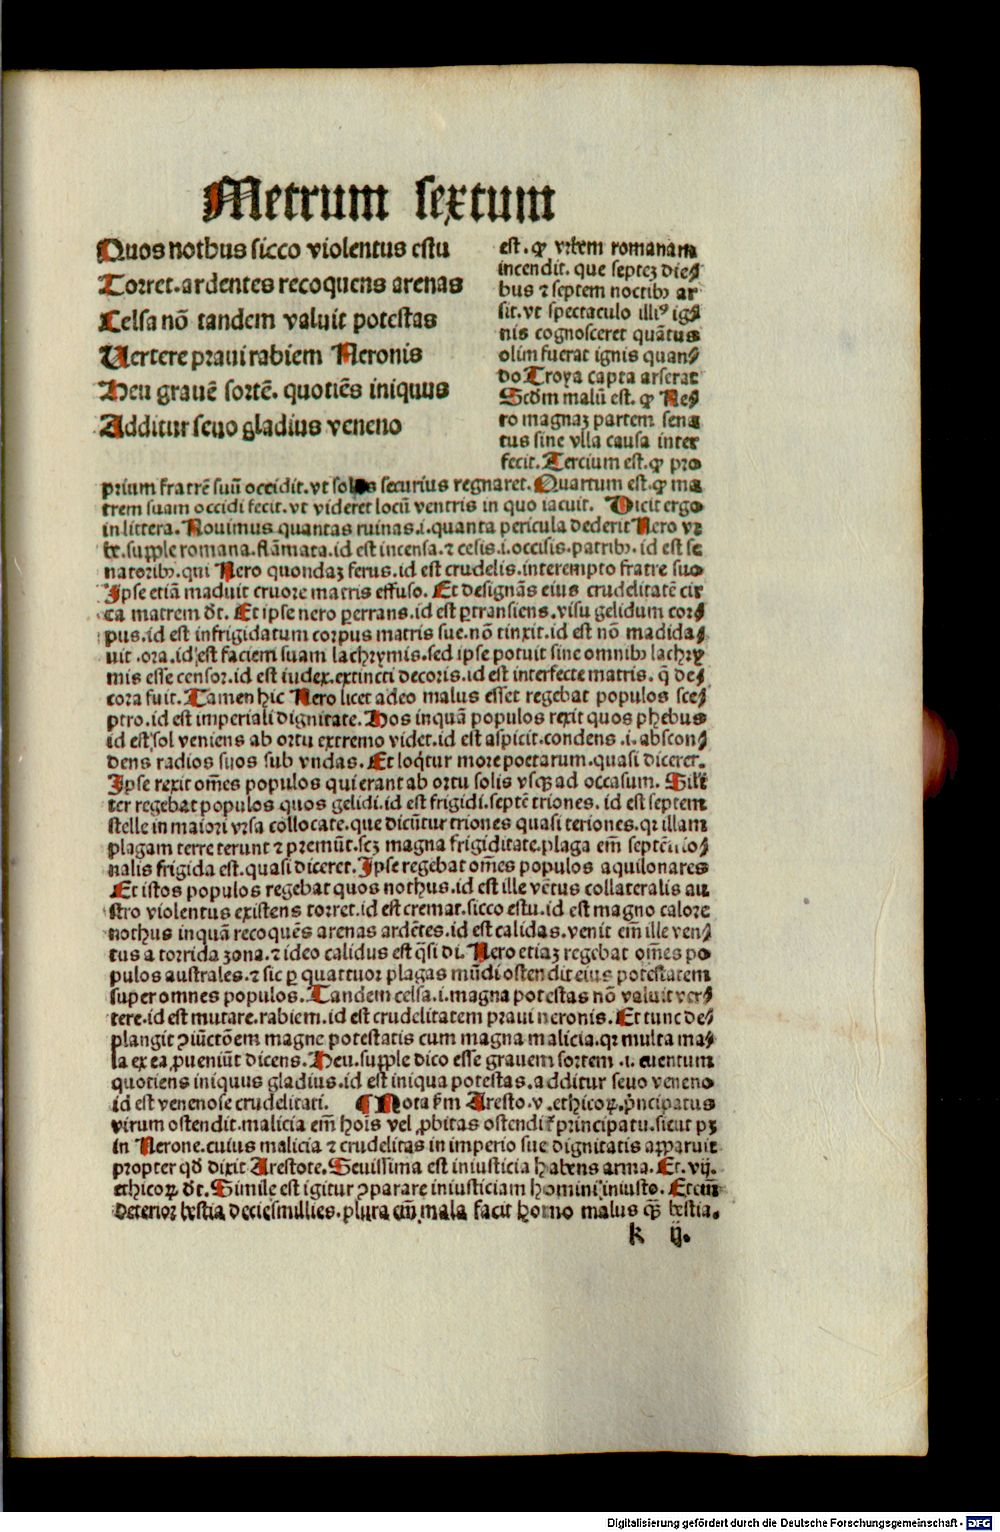 Metrum sextum
Quos nothus sicco violentus estu
Torret. ardentes recoquens arenas
Celsa nō tandem valuit potestas
Uertere praui rabiem Neronis
Heu grauē sortē. quotiēs iniquus
Additur seuo gladius veneno
est. ꝙ vrbem romanam
incendit. que septeꝫ die⸗
bus ⁊ septem noctibꝰ ar
sit. vt spectaculo illiꝰ ig⸗
nis cognosceret quātus
olim fuerat ignis quan⸗
do Troya capta arserat
Scdm malū est. ꝙ Ne⸗
ro magnaꝫ partem sena
tus sine vlla causa inter
fecit. Tercium est. ꝙ pro
prium fratrē suū occidit. vt solus securius regnaret. Quartum est. ꝙ ma
trem suam occidi fecit. vt videret locū ventris in quo iacuit. Dicit ergo
in littera. Nouimus quantas ruinas .i. quanta pericula dederit Nero vr
be. supple romana. flāmata. id est incensa. ⁊ cesis .i. occisis. patribꝰ. id est se
natoribꝰ. qui Nero quondaꝫ ferus. id est crudelis. interempto fratre suo
Ipse etiā maduit cruore matris effuso. Et designās eius crudelitatē cir
ca matrem dt. Et ipse nero ꝑerrans. id est ꝑtransiens. visu gelidum cor⸗
pus. id est infrigidatum corpus matris sue. nō tinxit. id est nō madida⸗
uit .ora. id est faciem suam lachrymis. sed ipse potuit sine omnibꝰ lachry
mis esse censor. id est iudex. extincti decoris. id est interfecte matris. q̄ de⸗
cora fuit. Tamen hic Nero licet adeo malus esset regebat populos sce⸗
ptro. id est imperiali dignitate. Hos inquā populos rexit quos phebus
id est sol veniens ab ortu extremo videt. id est aspicit. condens .i. abscon⸗
dens radios suos sub vndas. Et loq̄tur more poetarum. quasi diceret.
Ipse rexit om̄es populos qui erant ab ortu solis vsqꝫ ad occasum. Sili
ter regebat populos quos gelidi. id est frigidi. septē triones. id est septem
stelle in maiori vrsa collocate. que dicūtur triones quasi teriones. qr illam
plagam terre terunt ⁊ premūt. scꝫ magna frigiditate. plaga em̄ septētrio⸗
nalis frigida est. quasi diceret. Ipse regebat om̄es populos aquilonares
Et istos populos regebat quos nothus. id est ille vētus collateralis au
stro violentus existens torret. id est cremat. sicco estu. id est magno calore
nothus inquā recoquēs arenas ardētes. id est calidas. venit em̄ ille ven⸗
tus a torrida zona. ⁊ ideo calidus est q̄si di. Nero etiaꝫ regebat om̄es po
pulos australes. ⁊ sic ꝑ quattuor plagas mūdi ostendit eius potestatem
super omnes populos. Tandem celsa .i. magna potestas nō valuit ver⸗
tere. id est mutare. rabiem. id est crudelitatem praui neronis. Et tunc de⸗
plangit ꝯiūctōem magne potestatis cum magna malicia. qr multa ma⸗
la ex ea ꝓueniūt dicens. Heu. supple dico esse grauem sortem .i. euentum
quotiens iniquus gladius. id est iniqua potestas. additur seuo veneno
id est venenose crudelitati. ¶ Nota ẜm Aresto. v. ethicoꝝ. pncipatus
virum ostendit. malicia em̄ hoīs vel ꝓbitas ostendit̄ principatu. sicut pꝫ
in Nerone. cuius malicia ⁊ crudelitas in imperio sue dignitatis apparuit
propter qd dixit Arestote. Seuissima est iniusticia habens arma. Et. vij.
ethicoꝝ dt. Simile est igitur ꝯparare iniusticiam homini iniusto. Etem̄
deterior bestia deciesmillies. plura em̄ mala facit homo malus qꝫ bestia.
k ij.
Digitalisierung gefördert durch die Deutsche Forschungsgemeinschaft - DFG